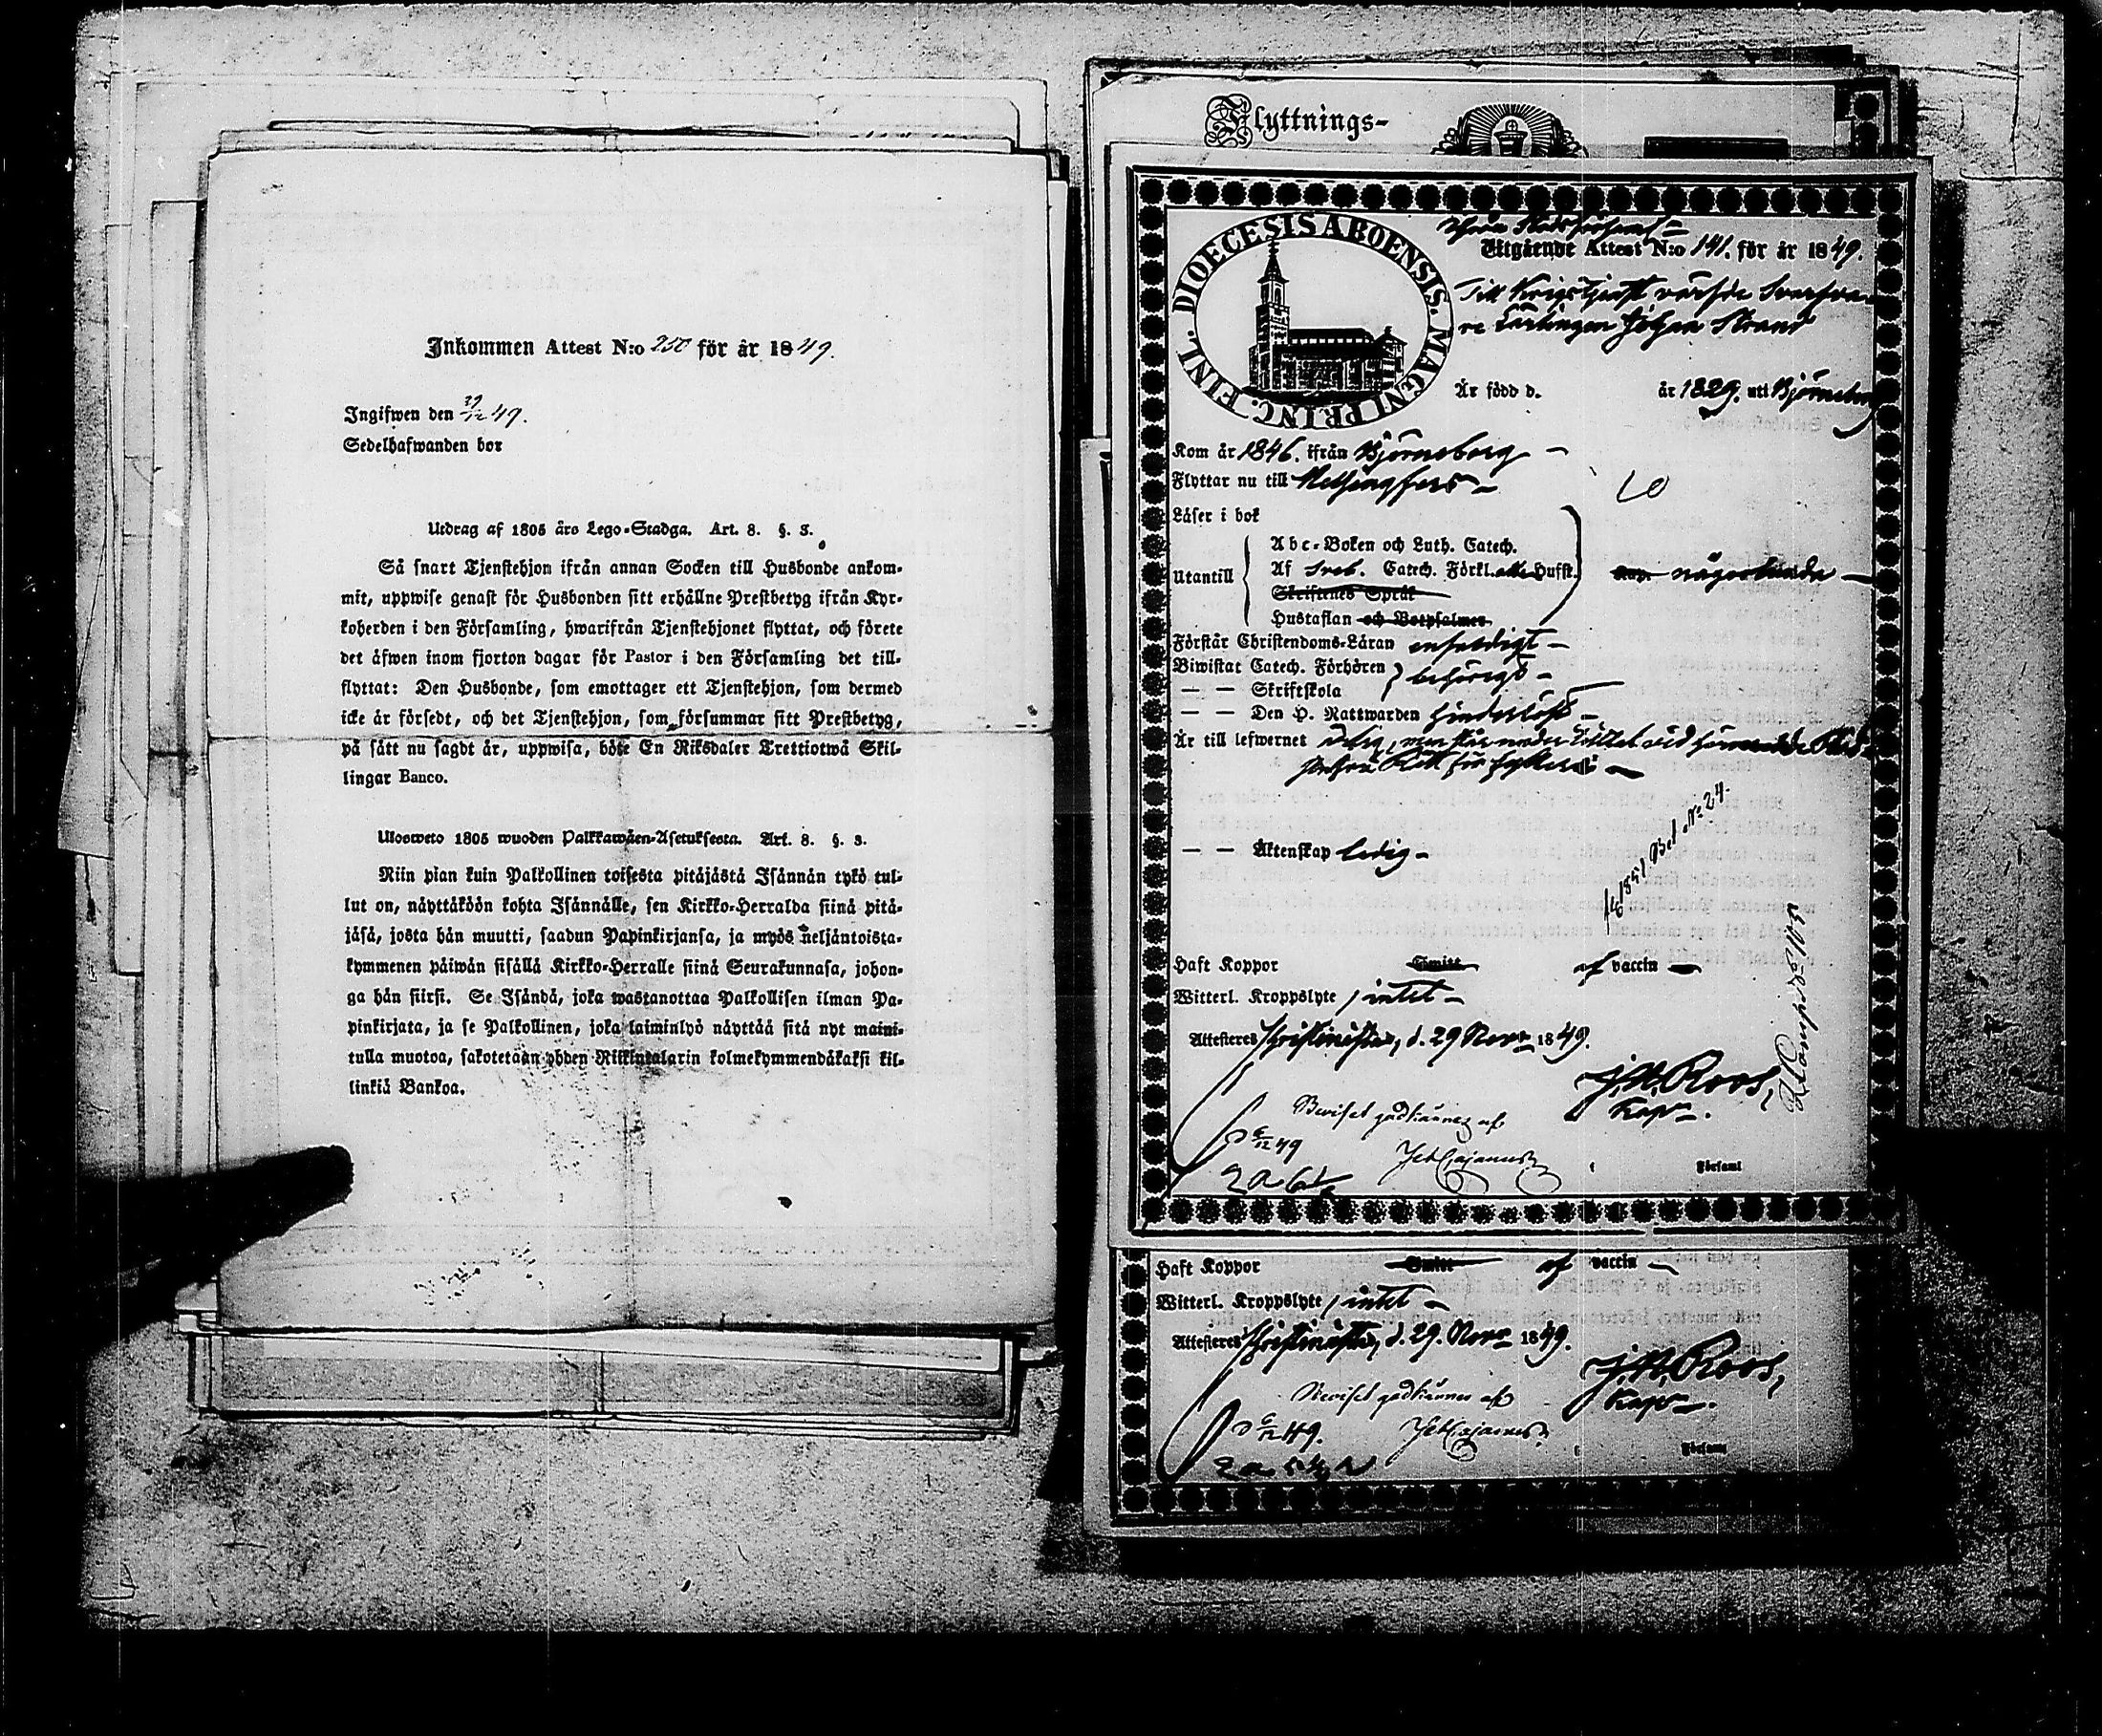 Inkommen Attest N:o 250 för år 1849.
Ingifwen den 29/12 49.
Sedelhafwanden bor
Utdrag af 1805 års Lego-Stadga. Art. 8. §. 3.
Så snart Tjenstehjon ifrån annan Socken till Husbonde ankom-
mit, uppwise genast för Husbonden sitt erhållne Prestbetyg ifrån Kyr-
koherden i den Församling, hwarifrån Tjenstehjonet flyttat, och förete
det äfwen inom fjorton dagar för Pastor i den Församling det till-
flyttat: Den Husbonde, som emottager ett Tjenstehjon, som dermed
icke är försedt, och det Tjenstehjon, som försummar sitt Prestbetyg,
på sätt nu sagdt är, uppwisa, böte En Riksdaler Trettiotwå Skil-
lingar Banco.
Ulosweto 1805 wuoden Palkkawäen-Asetuksesta. Art. 8. §. 3.
Niin pian kuin Palkollinen toisesta pitäjästä Isännän tykö tul-
lut on, näyttäköön kohta Isännälle, sen Kirkko-Herralda siinä pitä-
jäsä, josta hän muutti, saadun Papinkirjansa, ja myös neljäntoista-
kymmenen päiwän sisällä Kirkko-Herralle siinä Seurakunnasa, johon-
ga hän siirsi. Se Isändä, joka wastanottaa Palkollisen ilman Pa-
pinkirjata, ja se Palkollinen, joka laiminlyö näyttää sitä nyt maini-
tulla muotoa, sakotetaan yhden Riikintalarin kolmekymmendäkaksi kil-
linkiä Bankoa.
Flyttnings-
DIOECESIS ABOENSIS. MAGNI PRINC. FINL.
Utgående Attest N:o 141. för år 1849.
Till Krigstjenst
Lärlingen Johan Strand
Är född d. år 1829. uti Björneborg
Kom år 1846. ifrån Björneborg
Flyttar nu till Helsingfors
Läser i bok
Abc-Boken och Luth. Catech.
Utantill Af Sveb. Catech. Förkl. Hufst. någorlunda
Skriftenes Språk
Hustaflan och Botpsalmer
Förstår Christendoms-Läran enfaldigt
Biwistat Catech. Förhören behörigt
— — Skriftskola
— — Den H. Nattwarden hinderlöst
Är till lefwernet
— — Äktenskap ledig
1851 Bet No 24.
Haft Koppor af vaccin
Witterl. Kroppslyte, intet
Attesteres Christinestad, d. 29 Novr 1849.
J. W. Roos,
Kapn.
Beviset godkännes af
d 6/12 49
Joh Cajanus
Församl
Haft Koppor af vaccin
Witterl. Kroppslyte, intet
Attesteres Christinestad, d. 29. Novr 1849.
J. W. Roos,
Kapn.
Beviset godkännes af
d 6/12 49.
Joh Cajanus
Församl